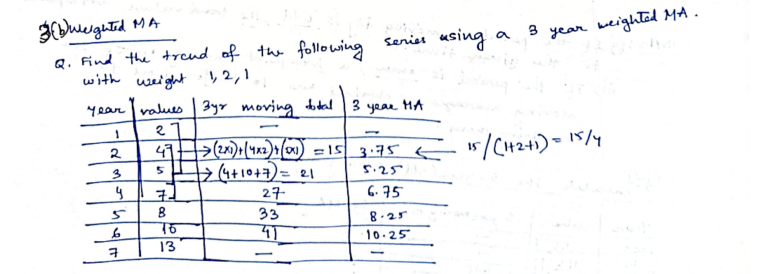 3(b) Weighted MA
Q. Find the trend of the following series using a 3 year weighted MA.
with weight 1, 2, 1
Year values 3yr moving total 3 year MA
1 2 — —
2 4 → (2×1)+(4×2)+(5×1) = 15 3.75 ← 15/(1+2+1) = 15/4
3 5 → (4+10+7) = 21 5.25
4 7 27 6.75
5 8 33 8.25
6 10 41 10.25
7 13 — —